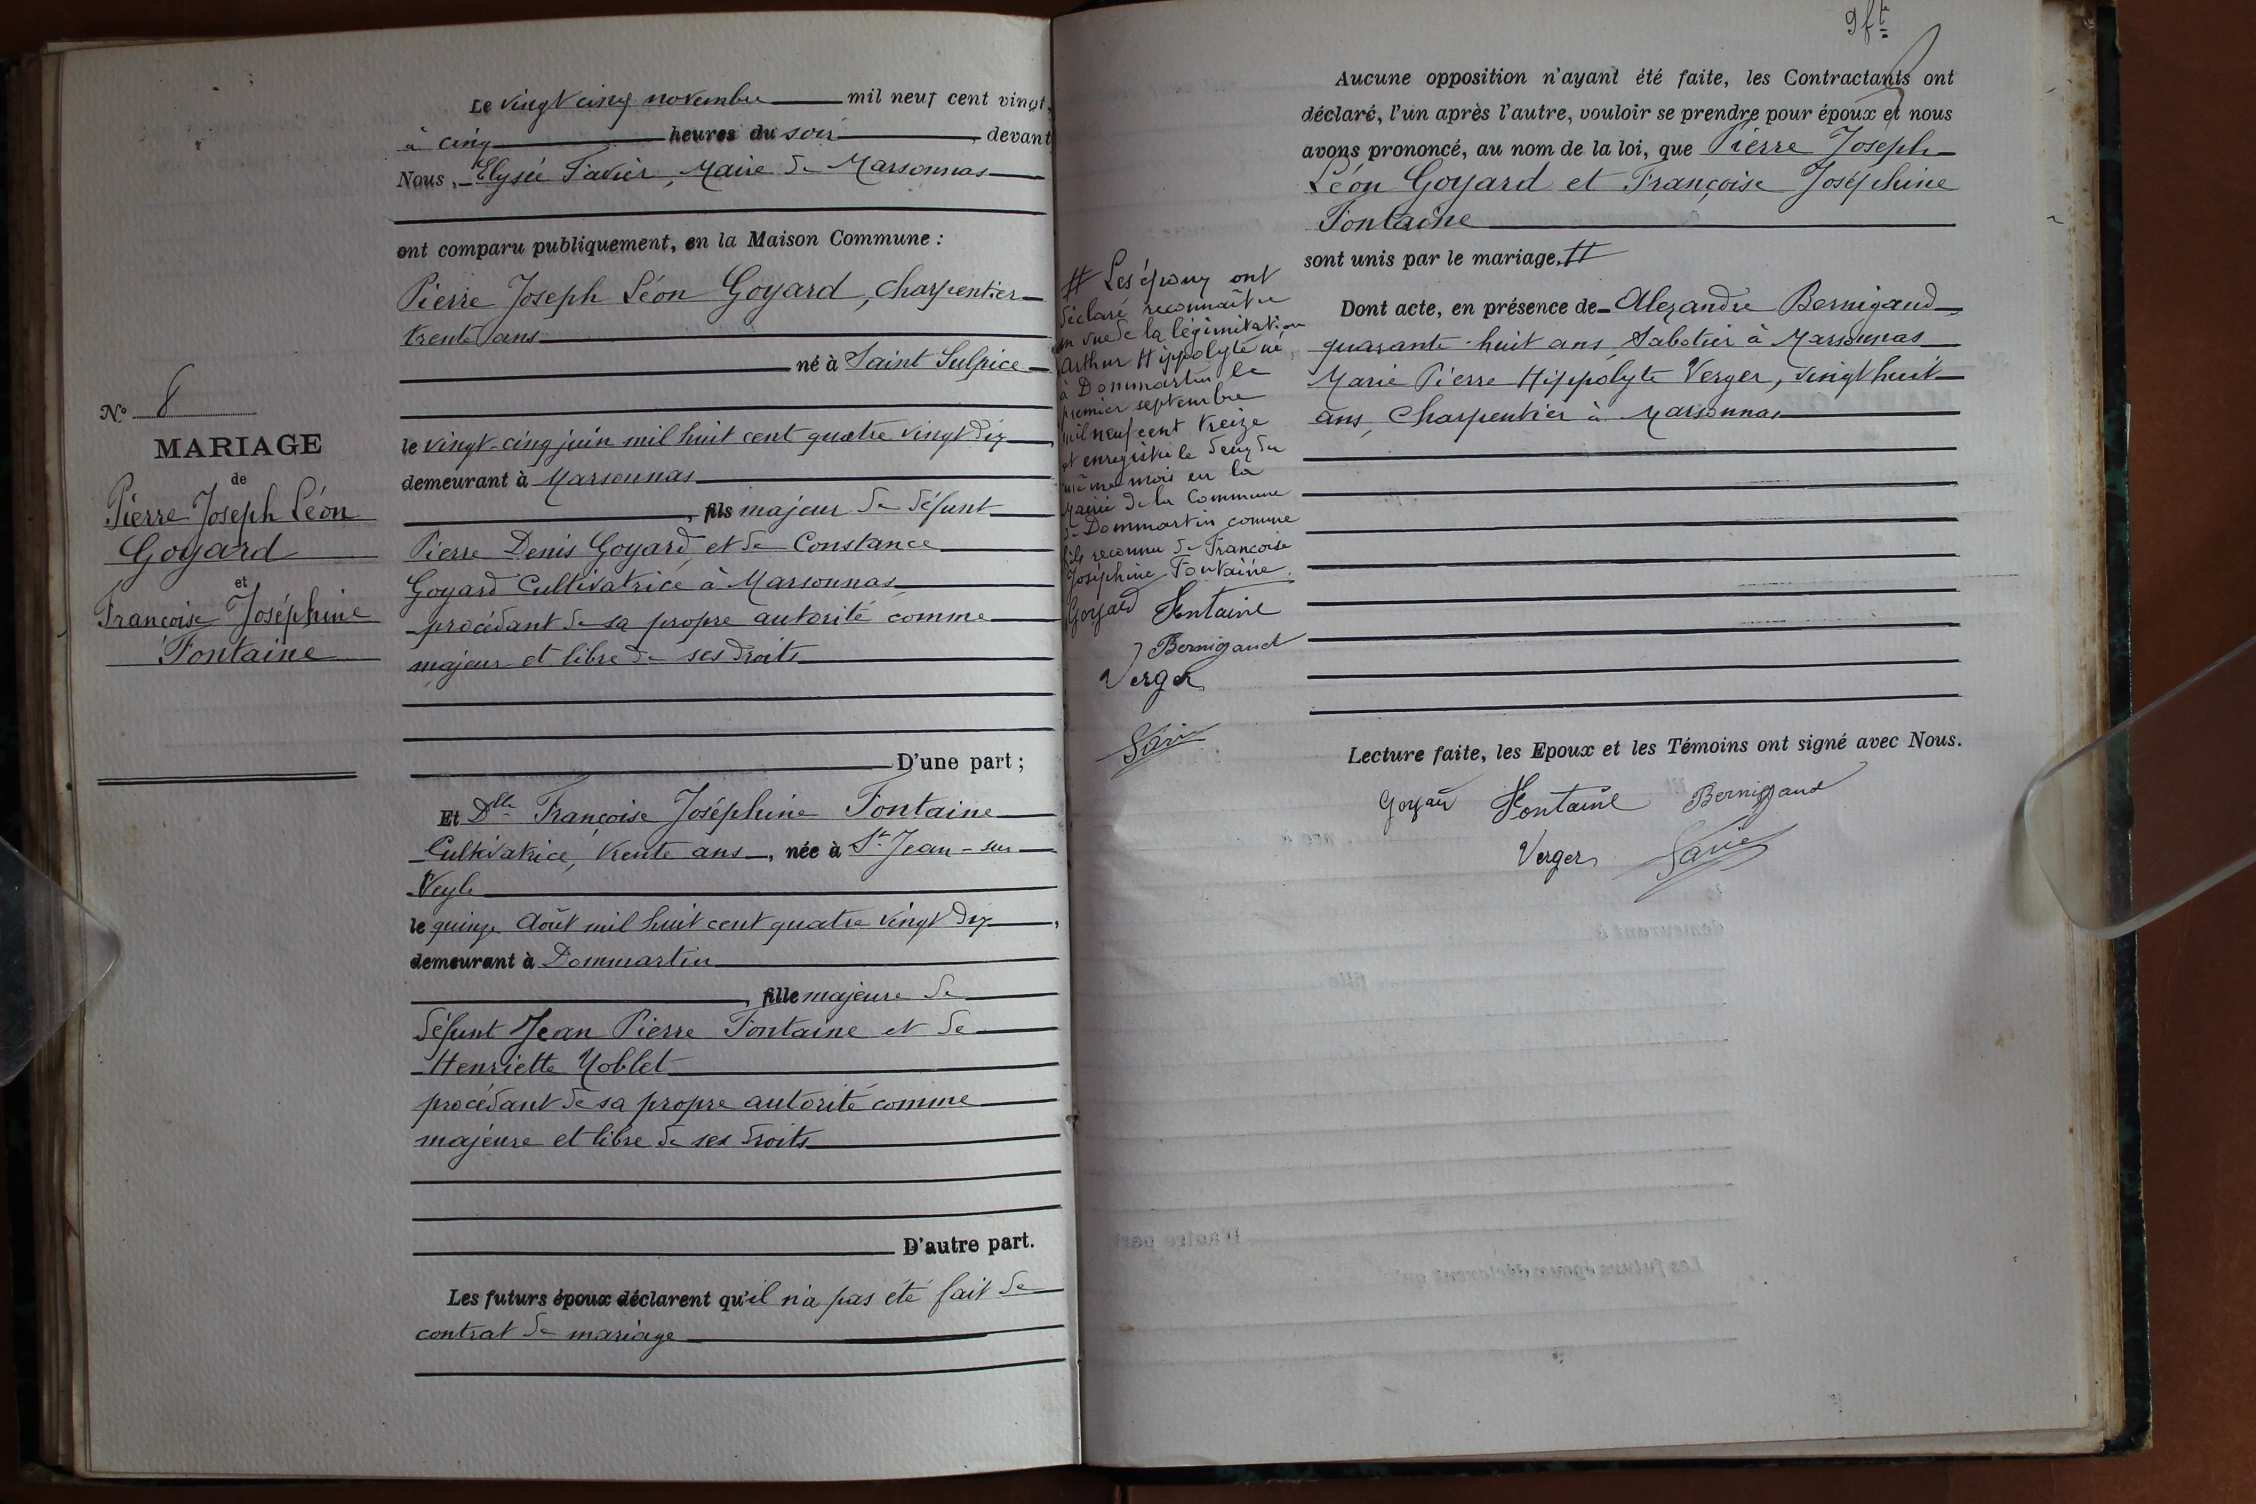 N° 8
MARIAGE
de
Pierre Joseph Léon
Goyard
et
Françoise Joséphine
Fontaine
Le vingt cinq novembre mil neuf cent vingt,
à cinq heures du soir, devant
Nous, Elysée Favier, Maire de Marsonnas
ont comparu publiquement, en la Maison Commune :
Pierre Joseph Léon Goyard, Charpentier
trente ans
né à Saint Sulpice
le vingt-cinq juin mil huit cent quatre vingt dix,
demeurant à Marsonnas
, fils majeur de défunt
Pierre Denis Goyard, et de Constance
Goyard Cultivatrice à Marsonnas
procédant de sa propre autorité comme
majeur et libre de ses droits
D'une part ;
Et Dlle Françoise Joséphine Fontaine
Cultivatrice, trente ans, née à St Jean-sur
Veyle
le quinze Août mil huit cent quatre vingt dix,
demeurant à Dommartin
, fille majeure de
défunt Jean Pierre Fontaine et de
Henriette Noblet
procédant de sa propre autorité comme
majeure et libre de ses droits
D'autre part.
Les futurs époux déclarent qu'il n'a pas été fait de
contrat de mariage
9 ft
Aucune opposition n'ayant été faite, les Contractants ont
déclaré, l'un après l'autre, vouloir se prendre pour époux et nous
avons prononcé, au nom de la loi, que Pierre Joseph
Léon Goyard et Françoise Joséphine
Fontaine
sont unis par le mariage. #
# Les époux ont
déclaré reconnaître
en vue de la légimitation
Arthur Hippolyte né
à Dommartin le
premier septembre
mil neuf cent treize
et enregistré le deux du
même mois en la
Mairie de la Commune
de Dommartin comme
fils reconnu de Françoise
Joséphine Fontaine.
Goyard Fontaine
Bernigaud
Verger
Favier
Dont acte, en présence de Alexandre Bernigaud,
quarante-huit ans, Sabotier à Marsonnas
Marie Pierre Hippolyte Verger, vingt huit
ans, Charpentier à Marsonnas
Lecture faite, les Epoux et les Témoins ont signé avec Nous.
Goyard Fontaine Bernigaud
Verger Favier